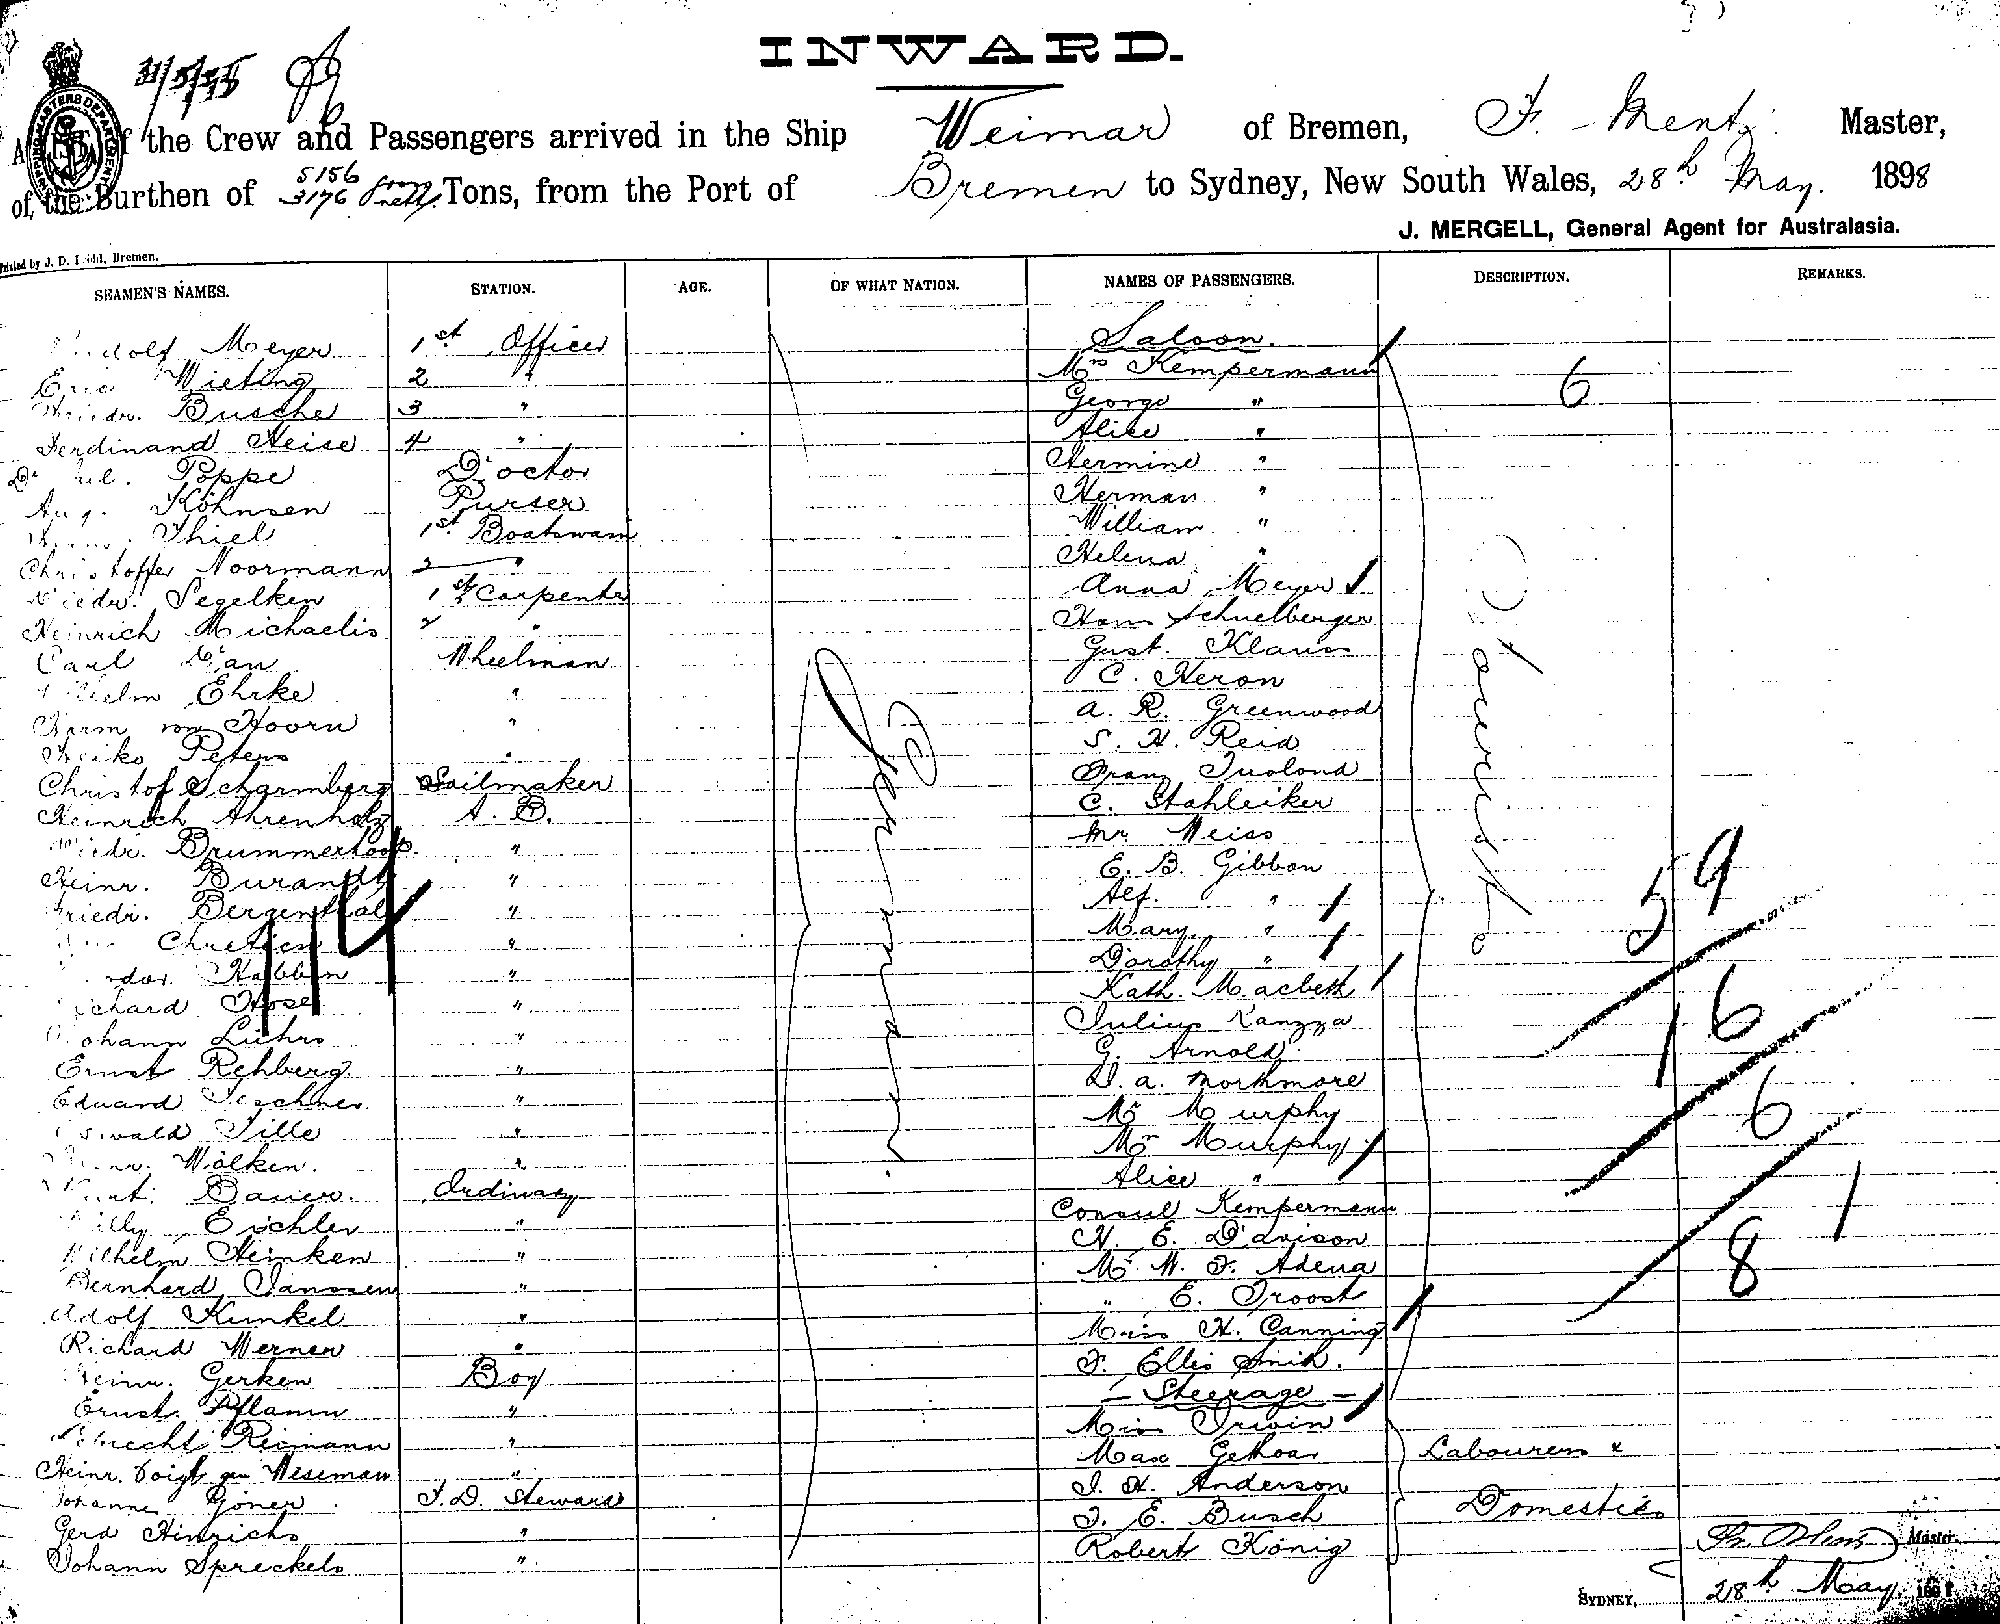 INWARD.
of the Crew and Passengers arrived in the Ship Weimar of Bremen, F. Mentz Master,
of the Burthen of 5156 3176 Tons, from the Port of Bremen to Sydney, New South Wales, 28th May. 1898
J. MERGELL, General Agent for Australasia.
Printed by J. D. Bremen.
SEAMEN'S NAMES. STATION. AGE. OF WHAT NATION. NAMES OF PASSENGERS. DESCRIPTION. REMARKS.
Meyer 1st Officer Saloon.
Wieting 2 " Mrs Kempermann 6
Busche 3 " George "
Ferdinand Heise 4 " Alice "
Dr Poppe Doctor Hermine "
Aug. Köhnsen Purser Herman "
Thiel 1st Boatswain William "
Christoffer Noormann 2 " Helena "
Segelken 1st Carpenter Anna Meyer
Heinrich Michaelis 2 " Hans Schnelberger
Carl Wheelman Gust. Klauss
Ehrke " C. Heron
Harm von Hoorn " A. R. Greenwood
Heiko Peters " S. H. Reid
Christof Scharmberg Sailmaker Franz
Heinrich Ahrenholz A. B. C. Stahleiker
Brummerloop " Mr Weiss
Heinr. Burandt " E. B. Gibbon
Friedr. Bergenthal " Alf. "
Chretien " Mary "
Habben " Dorothy "
Hose " Kath. Macbeth
Johann Lührs " Julius Kanzza
Ernst Rehberg " G. Arnold
Eduard Teschner " D. A. Northmore
Oswald Tille " Mr Murphy
Wölken. " Mrs Murphy
Bauer. Ordinary Alice "
Willy Eichler " Consul Kempermann
Wilhelm Heinken " H. E. Davison
Bernhard Janssen " Mr W. F. Adena
Adolf Kunkel " " E. Troost
Richard Werner " Miss H. Canning
Heinr. Gerken Boy F. Ellis Smith.
Ernst Pflamm " - Steerage -
Riemann " Miss Irwin
Heinr. Voigt gen Wieseman " Max Gehoar Labourers &
Johannes Göner T. D. Steward J. H. Anderson
Gerd Hinrichs " J. E. Busch Domestics
Johann Spreckels " Robert König
Germany
114
59
16
6
1
8
Master.
SYDNEY, 28th May 189